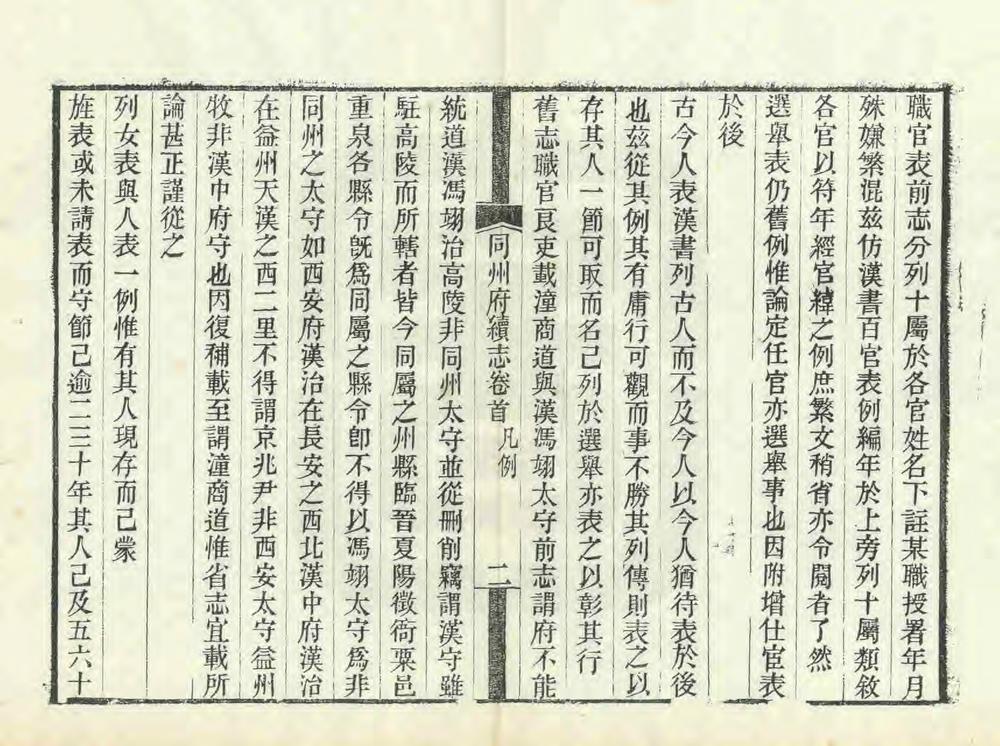 職官表前志分列十屬於各官姓名下註某職授署年月
殊嫌繁混茲仿漢書百官表例編年於上旁列十屬類敘
各官以符年經官緯之例庶繁文稍省亦令閱者了然
選舉表仍舊例惟論定任官亦選舉事也因附增仕宦表
於後
古今人表漢書列古人而不及今人以今人猶待表於後
也茲從其例其有庸行可觀而事不勝其列傳則表之以
存其人一節可取而名已列於選舉亦表之以彰其行
舊志職官良吏載潼商道與漢馮翊太守前志謂府不能
同州府續志卷首
凡例
二
統道漢馮翊治高陵非同州太守並從刪削竊謂漢守雖
駐高陵而所轄者皆今同屬之州縣臨晉夏陽徵衙粟邑
重泉各縣令旣爲同屬之縣令卽不得以馮翊太守爲非
同州之太守如西安府漢治在長安之西北漢中府漢治
在益州天漢之西二里不得謂京兆尹非西安太守益州
牧非漢中府守也因復補載至謂潼商道惟省志宜載所
論甚正謹從之
列女表與人表一例惟有其人現存而已蒙
旌表或未請表而守節已逾二三十年其人已及五六十